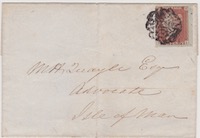 M H Quayle Esqr
Advocate
Isle of Man